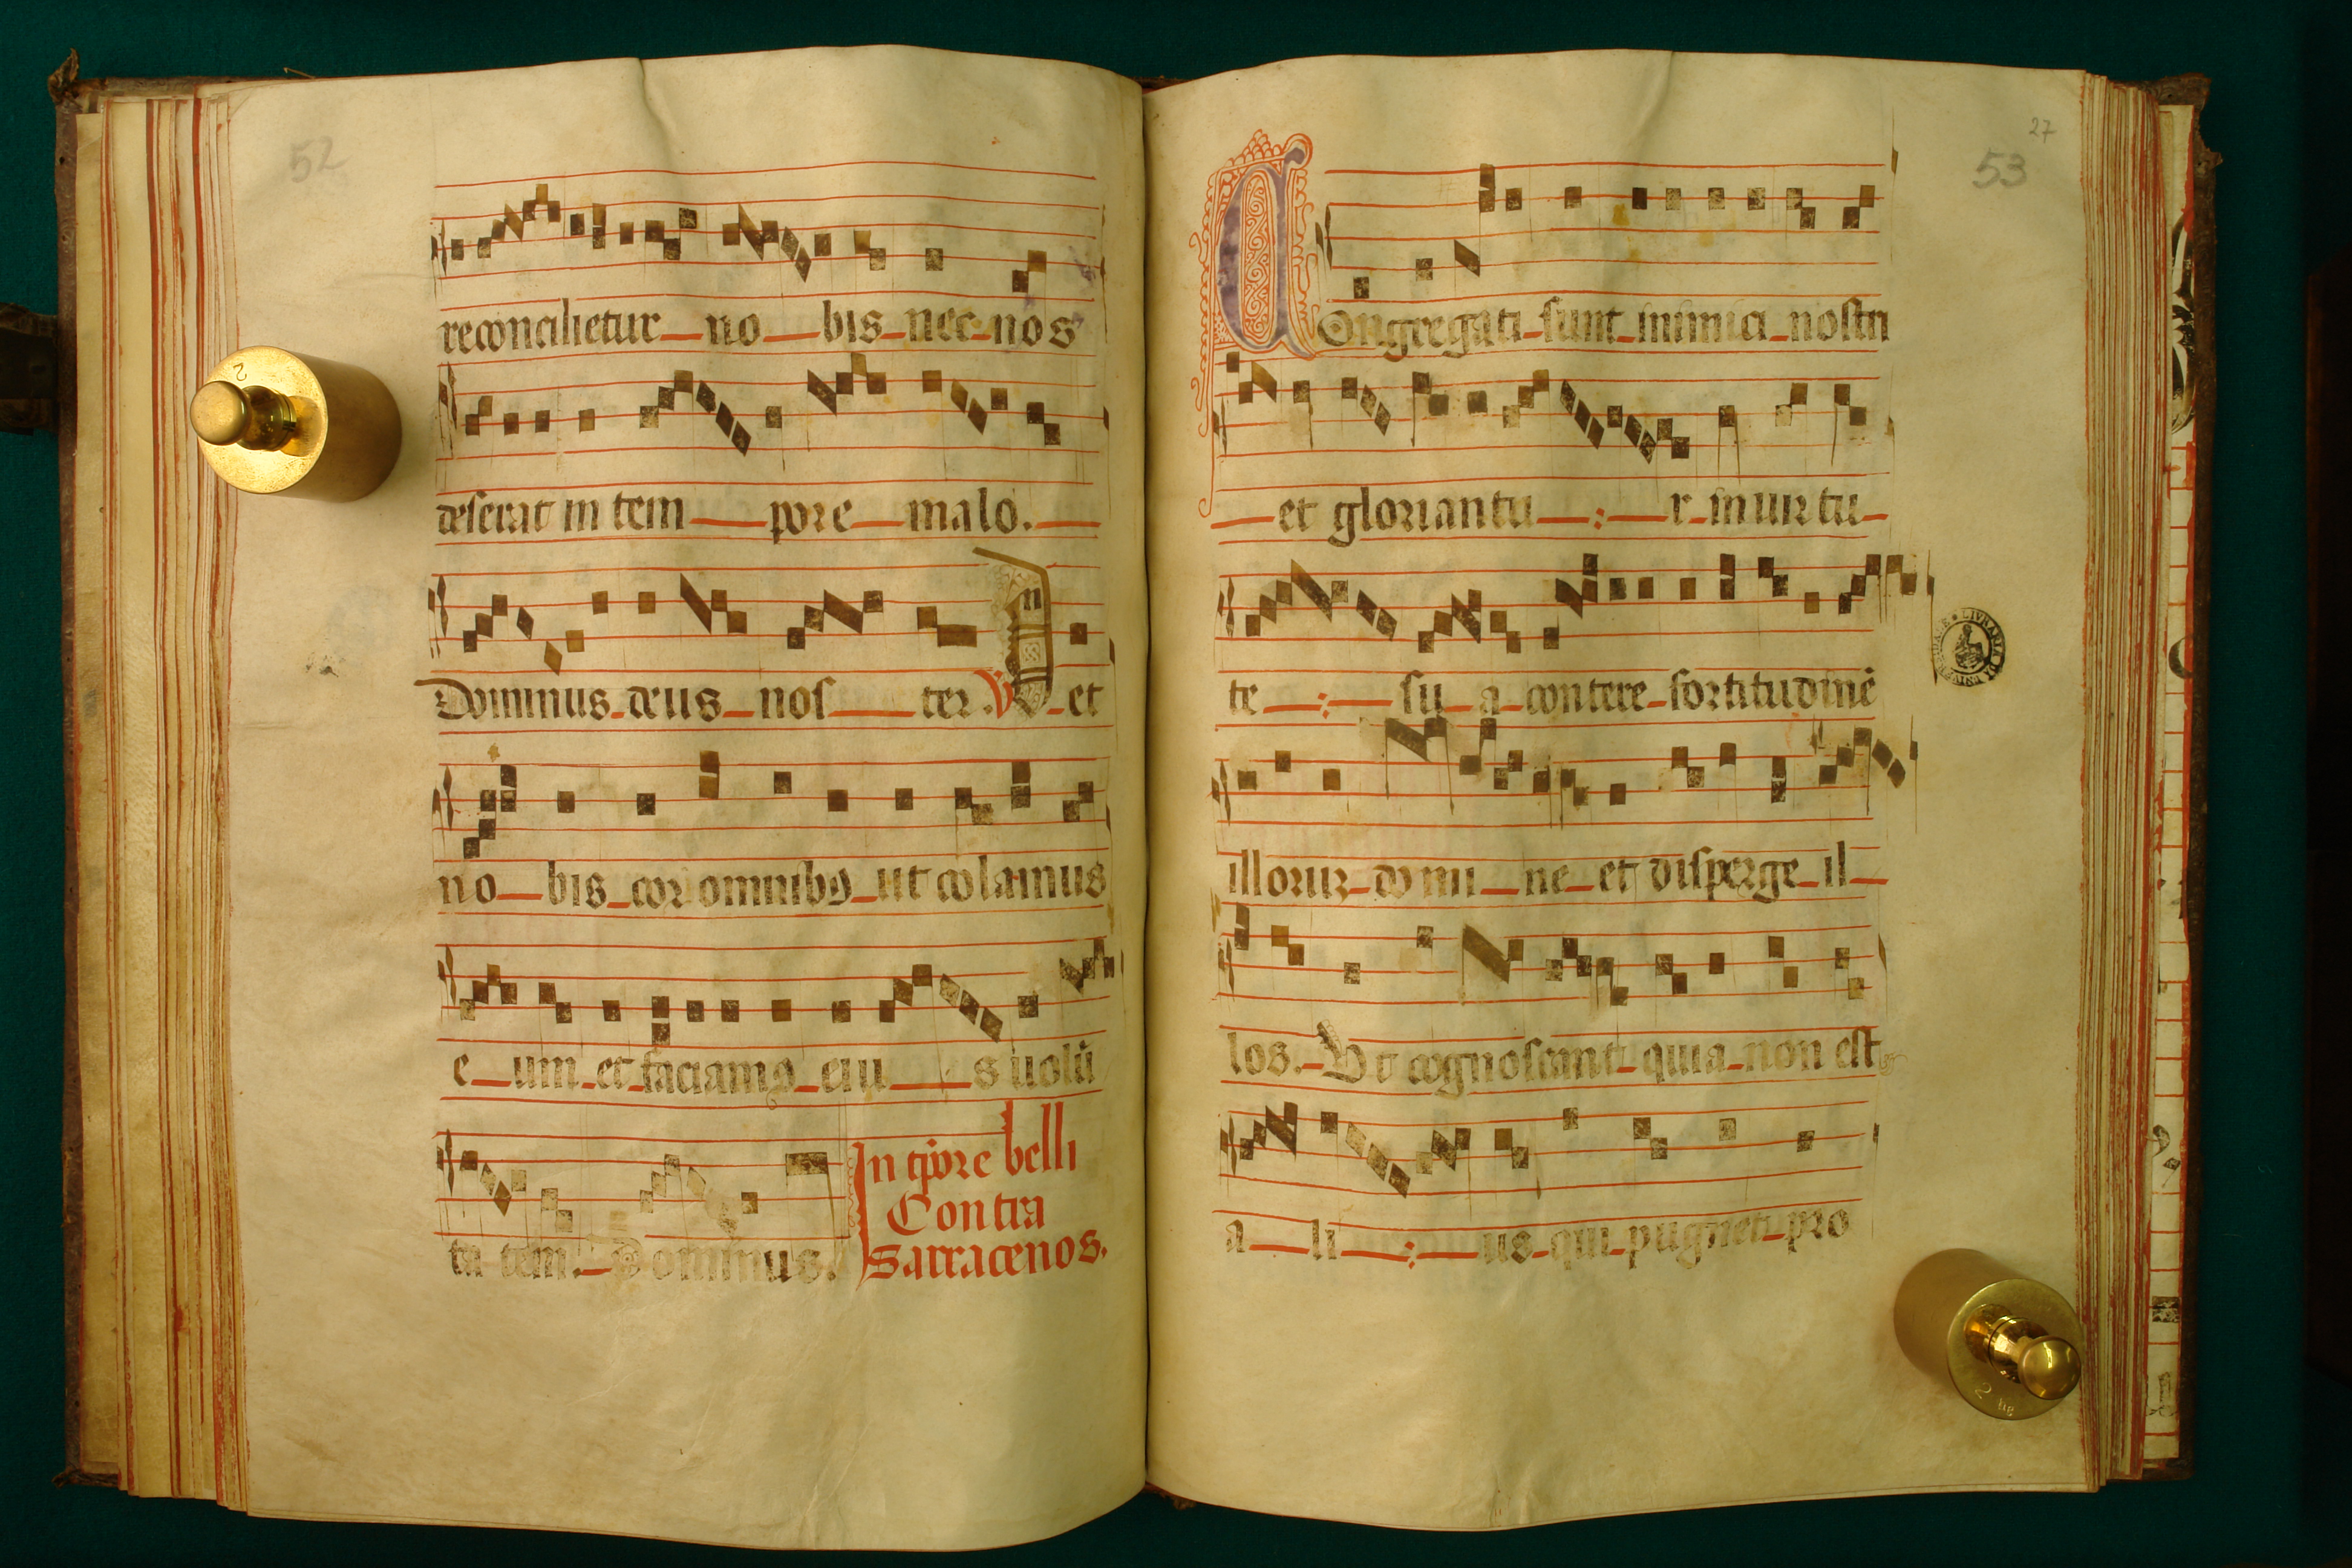 52
reconcilietur no bis nec nos
deserat in tem pore malo.
Dominus deus nos ter. V et
no bis cor omnibꝯ ut colamus
e um et faciamꝯ eiu s uolū
ta tem. Dominus.
In tp̄ore belli
Contra
sarracenos.
27
53
Congregati sunt inimici nostri
et gloriantu r in uirtu
te su a contere fortitudinē
illoruꝫ domi ne et disperge il
los. Vt cognoscant quia non est
a li us qui pugnet pro